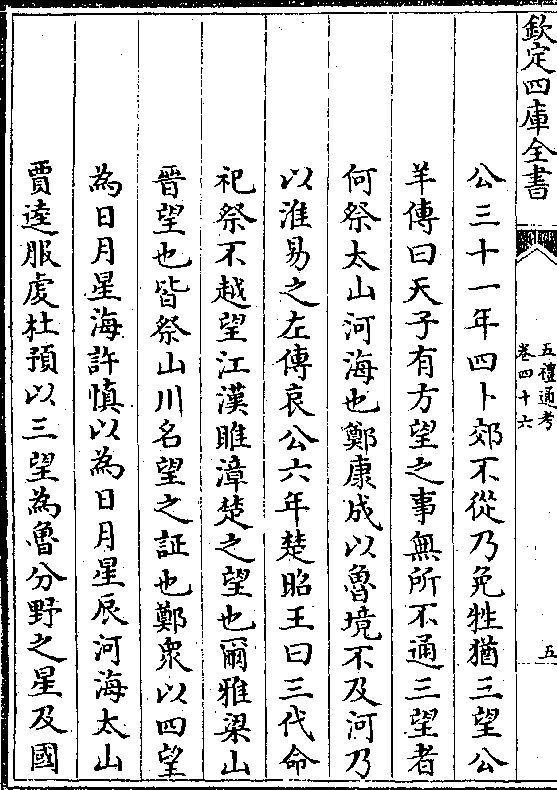 欽定四庫全書
五禮通考
卷四十六
五
公三十一年四卜郊不從乃免牲猶三望公
羊傳曰天子有方望之事無所不通三望者
何祭太山河海也鄭康成以魯境不及河乃
以淮易之左傳哀公六年楚昭王曰三代命
祀祭不越望江漢睢漳楚之望也爾雅梁山
晉望也皆祭山川名望之証也鄭衆以四望
為日月星海許慎以為日月星辰河海太山
賈逵服虔杜預以三望為魯分野之星及國